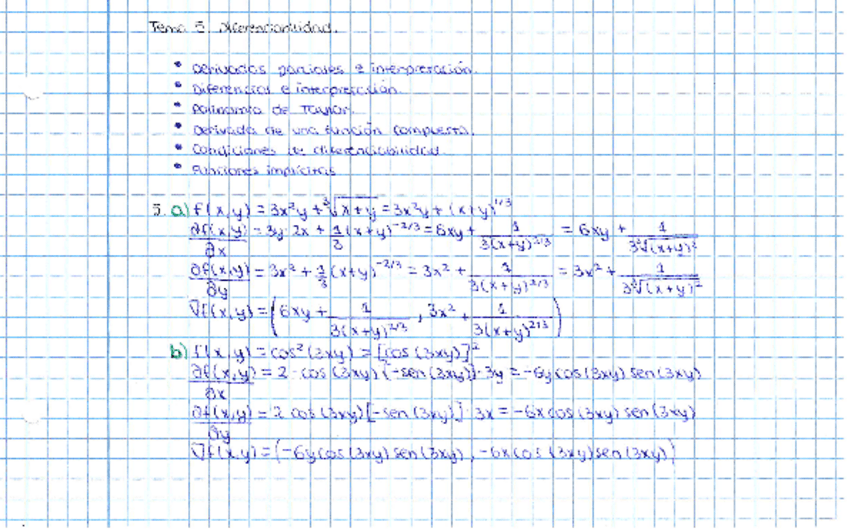 Tema 5. Diferenciabilidad.
• Derivadas parciales e interpretación.
• Diferencial e interpretación.
• Polinomio de Taylor.
• Derivada de una función compuesta.
• Condiciones de diferenciabilidad.
• Funciones implícitas
5. a) f(x,y) = 3x²y + ∛(x+y) = 3x²y + (x+y)^1/3
∂f(x,y)/∂x = 3y·2x + 1/3 (x+y)^-2/3 = 6xy + 1/(3(x+y)^2/3) = 6xy + 1/(3∛(x+y)²)
∂f(x,y)/∂y = 3x² + 1/3 (x+y)^-2/3 = 3x² + 1/(3(x+y)^2/3) = 3x² + 1/(3∛(x+y)²)
∇f(x,y) = (6xy + 1/(3(x+y)^2/3), 3x² + 1/(3(x+y)^2/3))
b) f(x,y) = cos²(3xy) = [cos(3xy)]²
∂f(x,y)/∂x = 2·cos(3xy)[-sen(3xy)]·3y = -6y cos(3xy) sen(3xy)
∂f(x,y)/∂y = 2 cos(3xy)[-sen(3xy)]·3x = -6x cos(3xy) sen(3xy)
∇f(x,y) = (-6y cos(3xy) sen(3xy), -6x cos(3xy) sen(3xy))